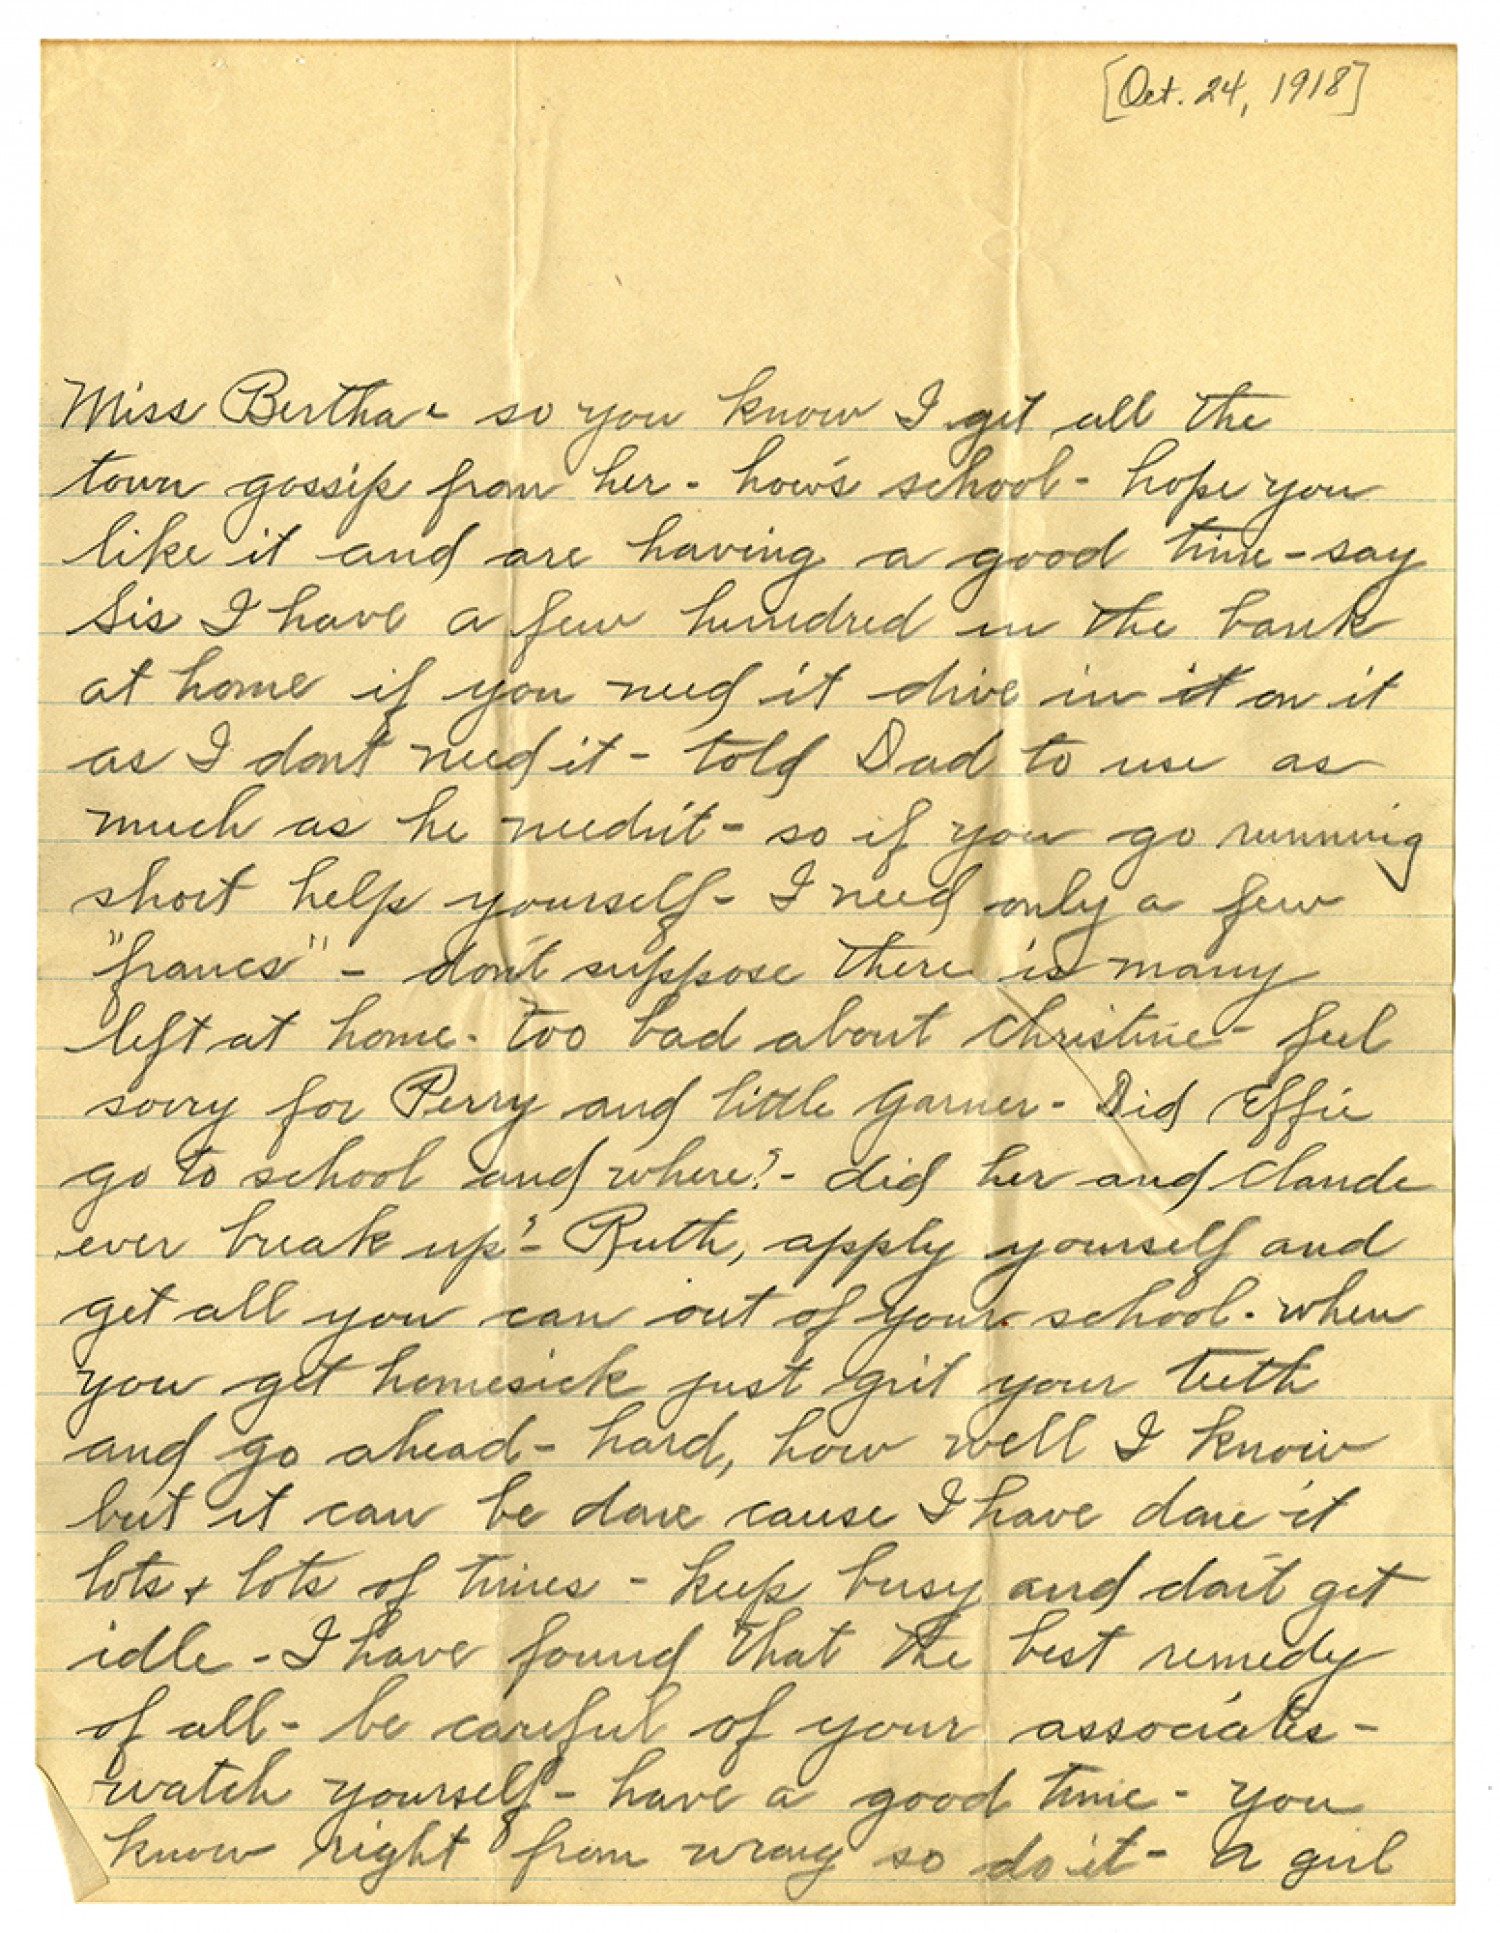 [Oct. 24, 1918]
Miss Bertha - so you know I get all the
town gossip from her - how's school - hope you
like it and are having a good time - say
Sis I have a few hundred in the bank
at home if you need it dive in it on it
as I dont need it - told Dad to use as
much as he needit - so if you go running
short help yourself - I need only a few
"francs" - don't suppose there is many
left at home - too bad about Christine - feel
sorry for Perry and little Garner - Did Effie
go to school and where? - did her and Claude
ever break up? - Ruth, apply yourself and
get all you can out of your school. when
you get homesick just grit your teeth
and go ahead - hard, how well I know
but it can be done cause I have done it
lots + lots of times - keep busy and don't get
idle - I have found that the best remedy
of all - be careful of your associates -
watch yourself - have a good time - you
know right from wrong so do it - a girl